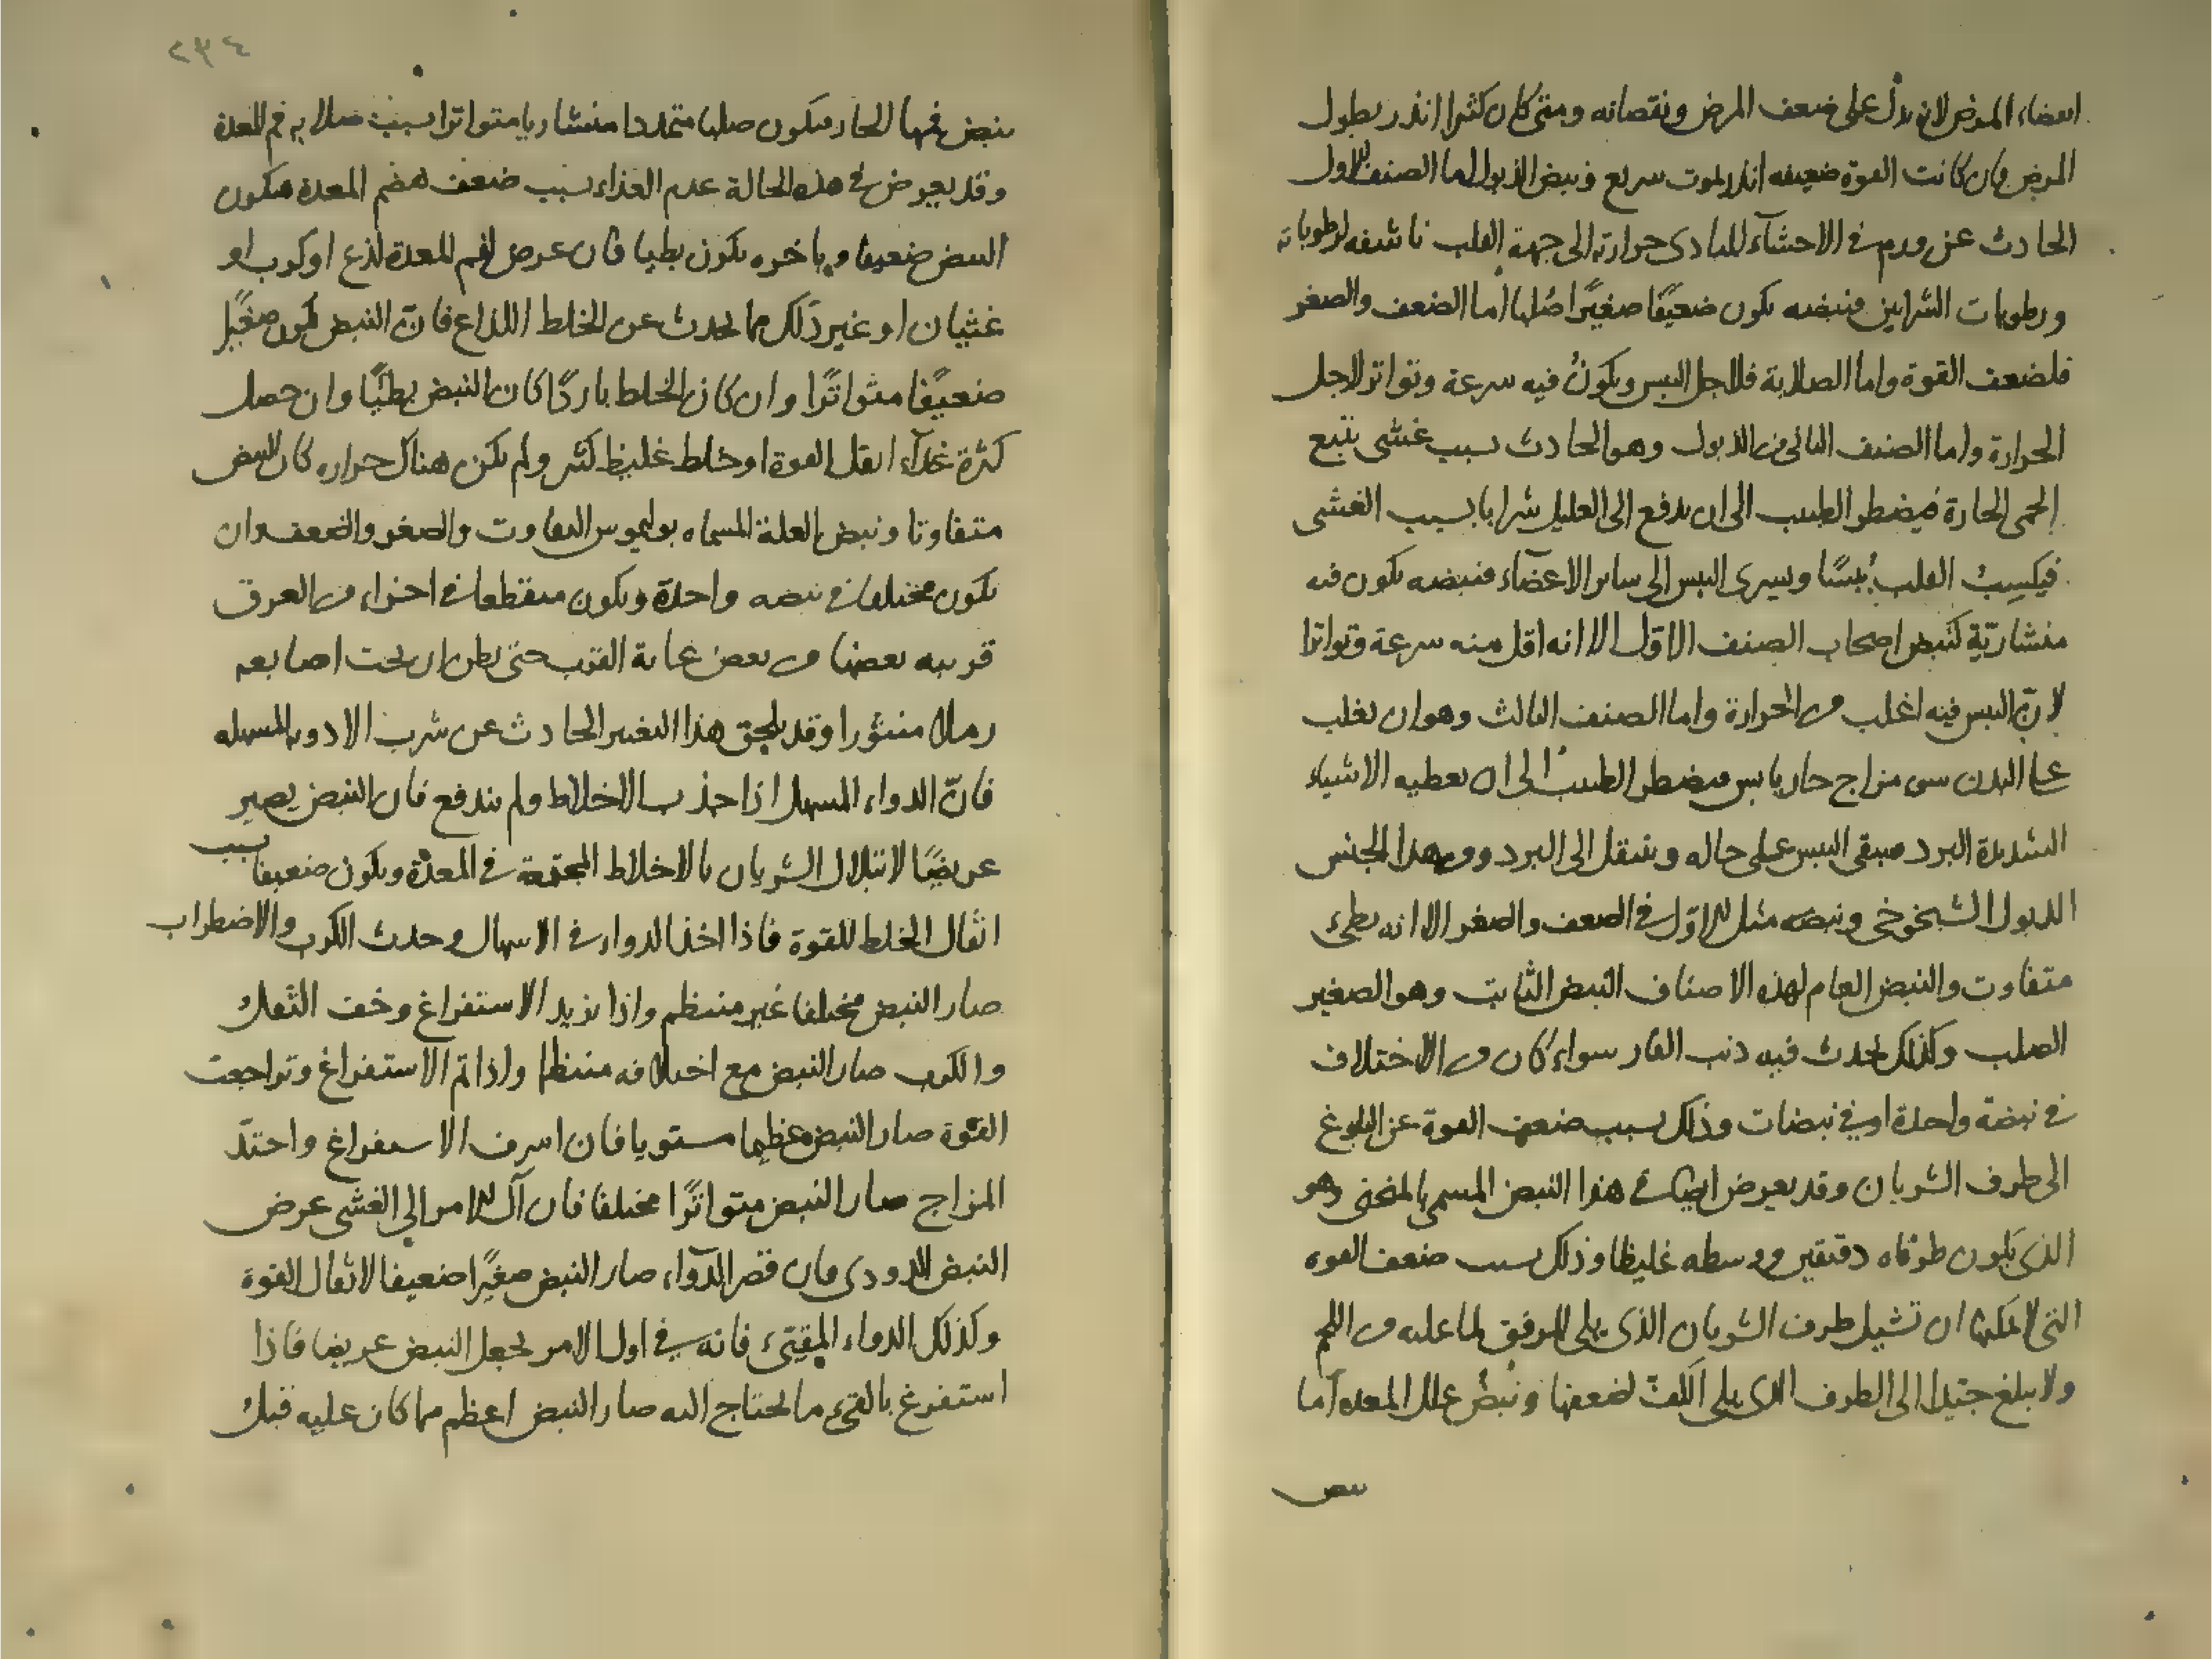 انقضاء المرض لانه يدل على ضعف المرض ونقصانه ومتى كان كثيرا انذر بطول
المرض وان كانت القوة ضعيفه انذر بموت سريع ونبض الذبول اما الصنف الاول
الحادث عن ورم في الاحشآء لتادى حرارته الى جهة القلب ناشفه لرطوباته
ورطوبات الشرايين فنبضه يكون ضعيفًا صغيرًا صُلبا اما الضعف والصغر
فلضعف القوة واما الصلابة فلاجل اليبس ويكونُ فيه سرعة وتواتر لاجل
الحرارة واما الصنف الثاني من الذبول وهو الحادث بسبب غشي يتبع
الحمى الحارة فيضطر الطبيب الى ان يدفع الى العليل شرابا بسبب الغشى
فيكسِبُ القلب يُبسًا ويسرى اليبس الى ساير الاعضآء فنبضه يكون فيه
منشاريّة كنبض اصحاب الصنف الاوّل الا انه اقل منه سرعة وتواترا
لانّ اليبس فيه اغلب من الحرارة واما الصنف الثالث وهو ان يغلب
على البدن سو مزاج حار يابس فيضطر الطبيب الى ان يعطيه الاشياء
الشديدة البرد فيبقى اليبس على حاله وينتقل الى البرد ومن هذا الجنس
الذبول الشيخوخى ونبضه مثل الاوّل في الضعف والصغر الا انه بطيء
متفاوت والنبض العام لهذه الاصناف النبض الثابت وهو الصغير
الصلب وكذلك يحدث فيه ذنب الفار سواء كان من الاختلاف
في نبضة واحدة او في نبضات وذلك بسبب ضعف القوة عن البلوغ
الى طرف الشريان وقد يعرض ايضا في هذا النبض المسمى بالمنحنى وهو
الذى يكون طرفاه دقيقين ووسطه غليظا وذلك بسبب ضعف القوه
التي لا يمكنها ان تشيل طرف الشريان الذى يلى المرفق لما عليه من اللحم
ولا يبلغ جيدا الى الطرف الذى يلى الكفّ لضعفها ونبضُ علل المعده اما
نبض
نبض فمها الحار فيكون صلبا متمددا منشاريا متواترا بسبب صلابه فم المعدة
وقد يعرض في هذه الحالة عدم الغذاء بسبب ضعف هضم المعدة فيكون
النبض ضعيفا وباخره يكون بطيا فان عرض لفم المعدة لذع او كرب او
غثيان او غير ذلك مما يحدث عن الخلط اللذاع فانّ النبض يكون صغيرًا
ضعيفًا متواترًا وان كان الخلط باردًا كان النبض بطيئًا وان حصل
كثرة غذآء اثقل القوة او خلط غليظ كثير ولم يكن هناك حراره كان النبض
متفاوتا ونبض العلة المسماه بوليموس التفاوت والصغر والضعف وان
يكون مختلفا في نبضه واحدة ويكون منقطعا في اجزاء من العرق
قريبه بعضها من بعض غاية القرب حتى يظن ان تحت اصابعه
رملا منثورا وقد يلحق هذا التغير الحادث عن شرب الادويه المسهله
فانّ الدواء المسهل اذا جذب الاخلاط ولم يندفع فان النبض يصير
عريضًا لابتلال الشريان بالاخلاط المجتمعة في المعدة ويكون ضعيفا بسبب
اثقال الخلط للقوة فاذا اخذ الدواء في الاسهال وحدث الكرب والاضطراب
صار النبض مختلفا غير منتظم واذا تزيد الاستفراغ وخف الثقل
والكرب صار النبض مع اختلافه منتظما واذا تم الاستفراغ وتراجعت
القوّة صار النبض عظيما مستويا فان اسرف الاستفراغ واحتدّ
المزاج صار النبض متواترًا مختلفا فان آل الامر الى الغشى عرض
النبض الدودى فان قصر الدوآء صار النبض صغيرًا ضعيفا لاثقال القوة
وكذلك الدواء المقيّئ فانه في اول الامر يجعل النبض عريضا فاذا
استفرغ بالقيء ما يحتاج اليه صار النبض اعظم مما كان عليه قبل